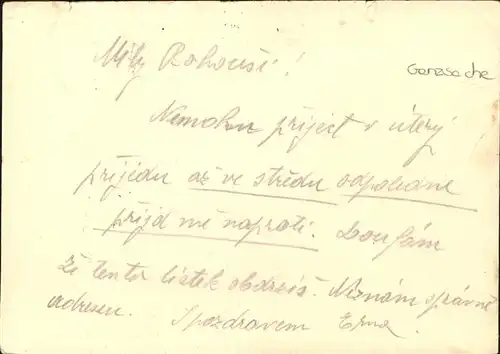 Milý Rohouši!
Ganzsache
Nemohu přiject v úterý
přijedu až ve středu odpoledne
přijď mě naproti. Doufám
že tento lístek obdržíš. Neznám správně
adresu. S pozdravem Erna